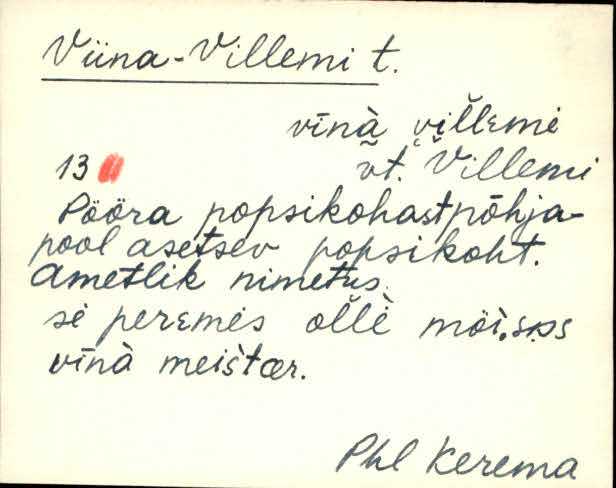 Viina-Villemi t.
vīnà villemi
13 vt. Villemi
Pööra popsikohast põhja-
pool asetsev popsikoht.
Ametlik nimetus.
se peremes ollè
vīnà meištær.
Phl Kerema